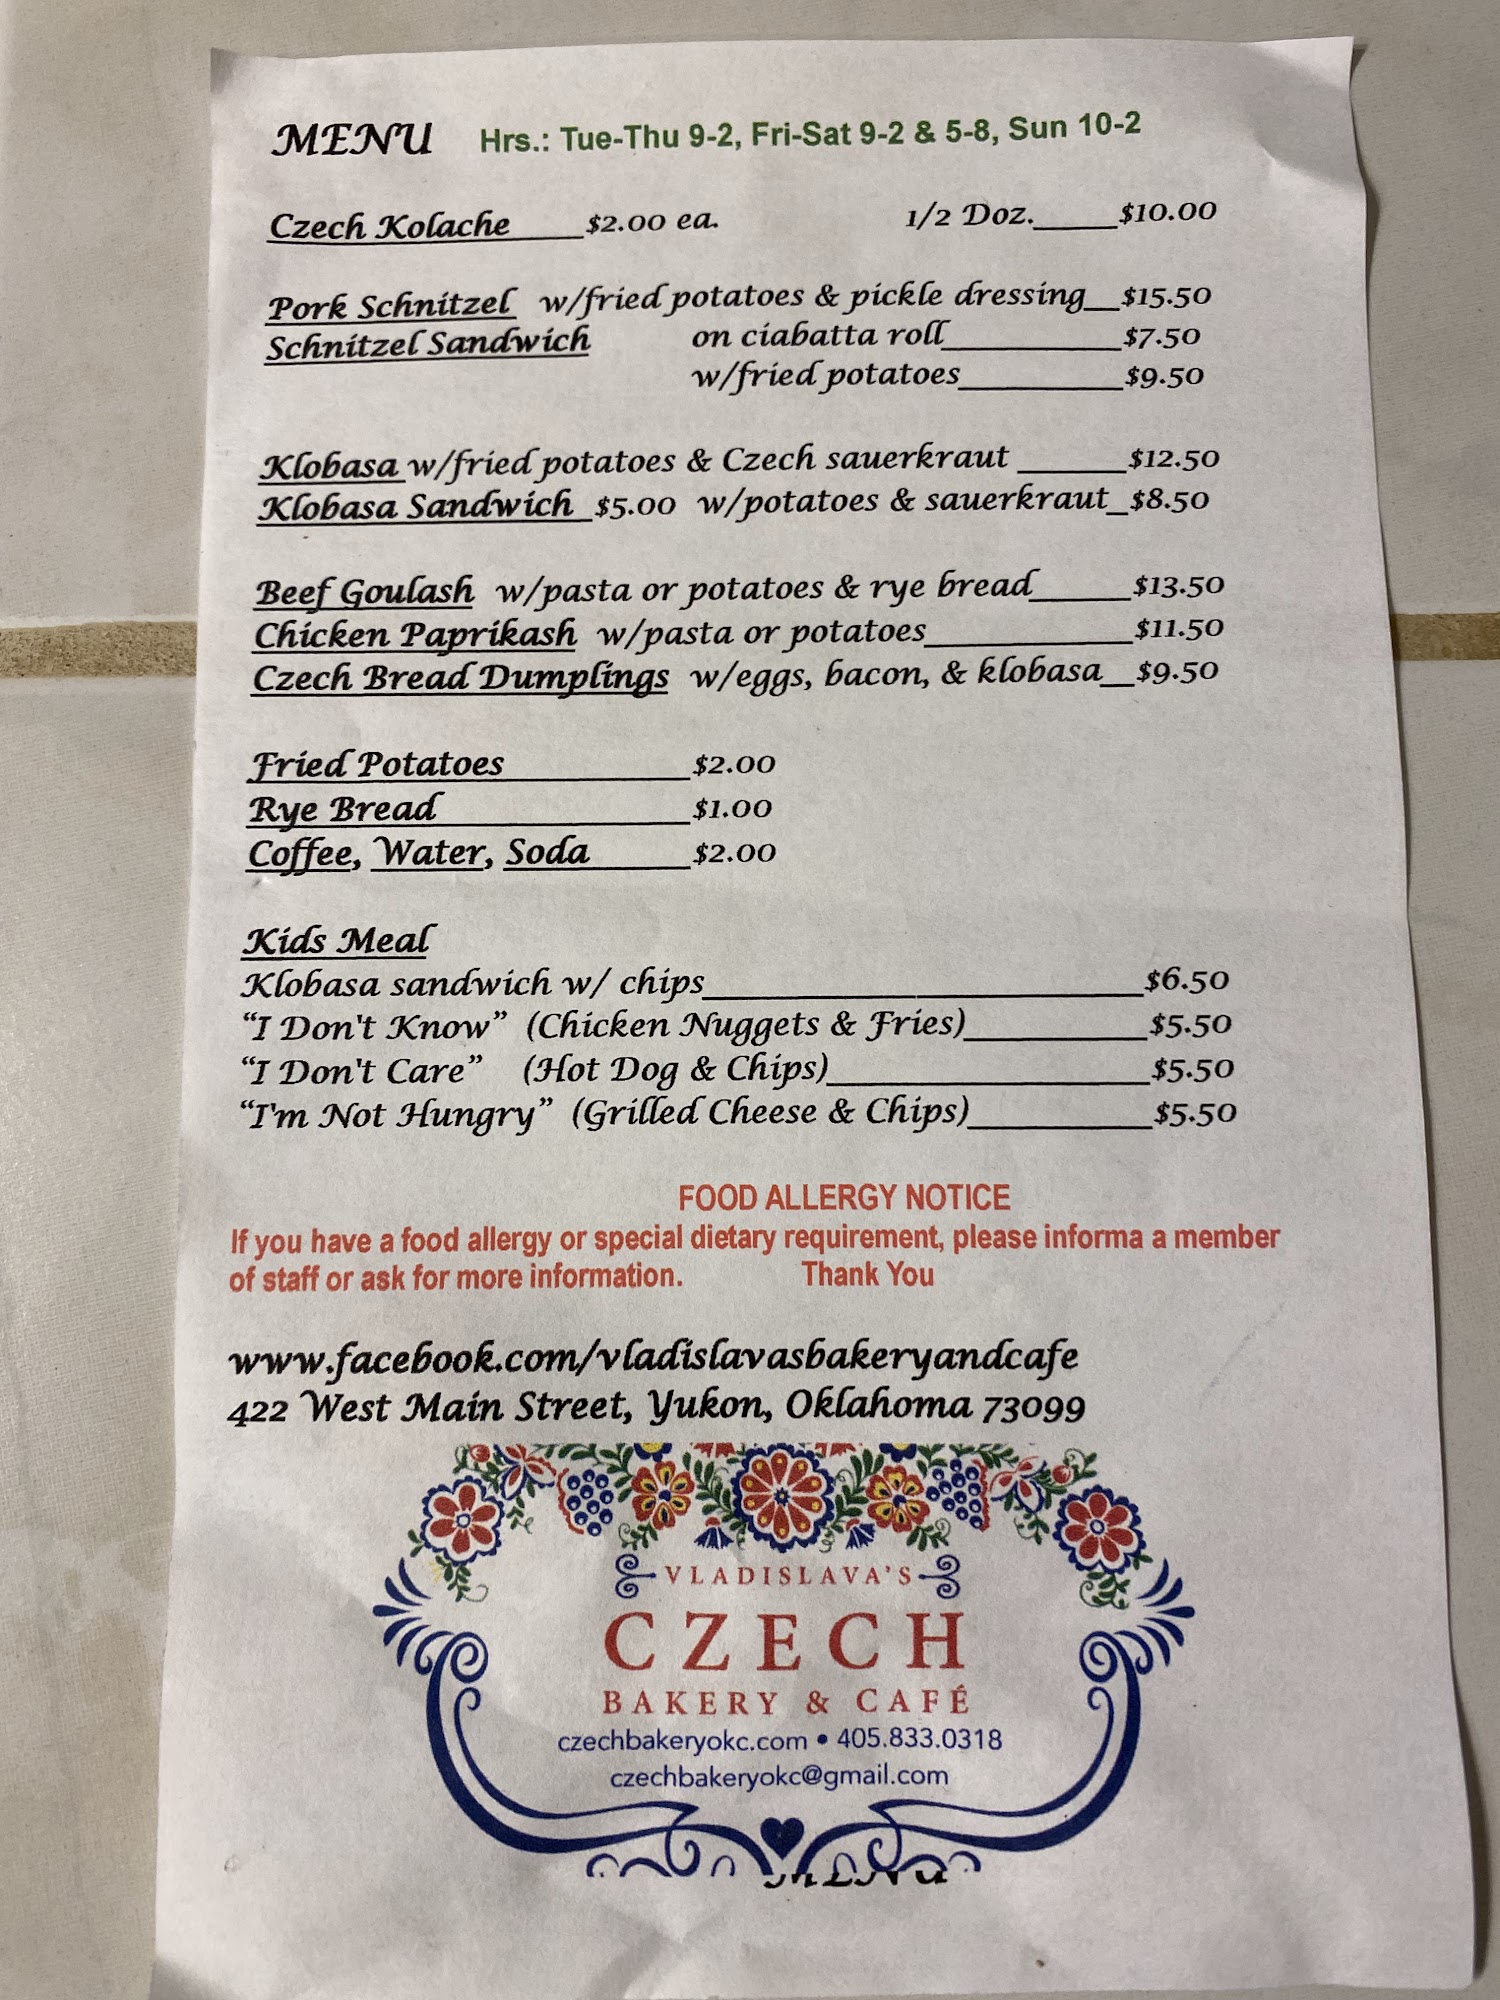 MENU Hrs.: Tue-Thu 9-2, Fri-Sat 9-2 & 5-8, Sun 10-2
Czech Kolache____$2.00 ea. 1/2 Doz._____$10.00
Pork Schnitzel w/fried potatoes & pickle dressing__$15.50
Schnitzel Sandwich on ciabatta roll__________$7.50
w/fried potatoes_________$9.50
Klobasa w/fried potatoes & Czech sauerkraut ______$12.50
Klobasa Sandwich $5.00 w/potatoes & sauerkraut_$8.50
Beef Goulash w/pasta or potatoes & rye bread_____$13.50
Chicken Paprikash w/pasta or potatoes___________$11.50
Czech Bread Dumplings w/eggs, bacon, & klobasa__$9.50
Fried Potatoes__________$2.00
Rye Bread_____________$1.00
Coffee, Water, Soda_____$2.00
Kids Meal
Klobasa sandwich w/ chips_______________________$6.50
“I Don't Know” (Chicken Nuggets & Fries)_________$5.50
“I Don't Care” (Hot Dog & Chips)________________$5.50
“I'm Not Hungry” (Grilled Cheese & Chips)_________$5.50
FOOD ALLERGY NOTICE
If you have a food allergy or special dietary requirement, please informa a member
of staff or ask for more information. Thank You
www.facebook.com/vladislavasbakeryandcafe
422 West Main Street, Yukon, Oklahoma 73099
VLADISLAVA'S
CZECH
BAKERY & CAFÉ
czechbakeryokc.com • 405.833.0318
czechbakeryokc@gmail.com